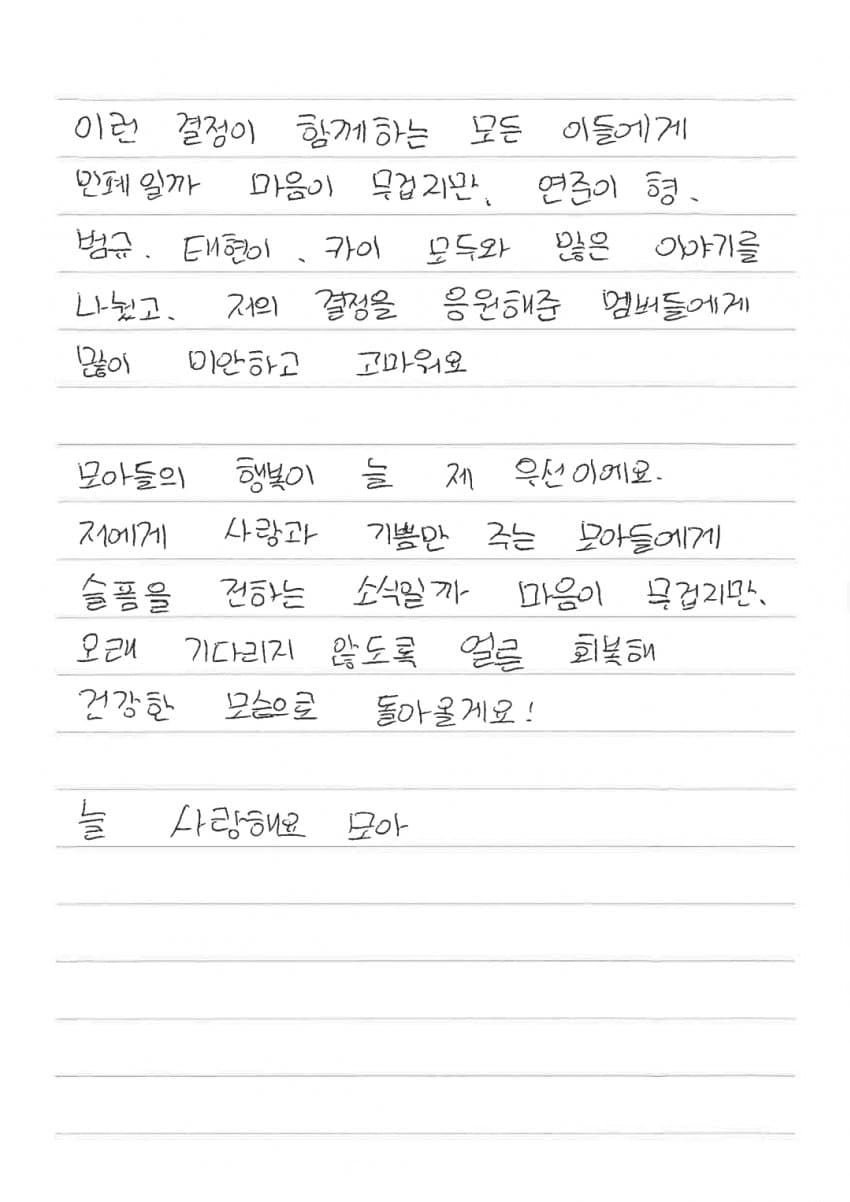 이런 결정이 함께하는 모든 이들에게
민폐일까 마음이 무겁지만, 연준이 형,
범규, 태현이, 카이 모두와 많은 이야기를
나눴고, 저의 결정을 응원해준 멤버들에게
많이 미안하고 고마워요
모아들의 행복이 늘 제 우선이에요.
저에게 사랑과 기쁨만 주는 모아들에게
슬픔을 전하는 소식일까 마음이 무겁지만,
오래 기다리지 않도록 얼른 회복해
건강한 모습으로 돌아올게요!
늘 사랑해요 모아